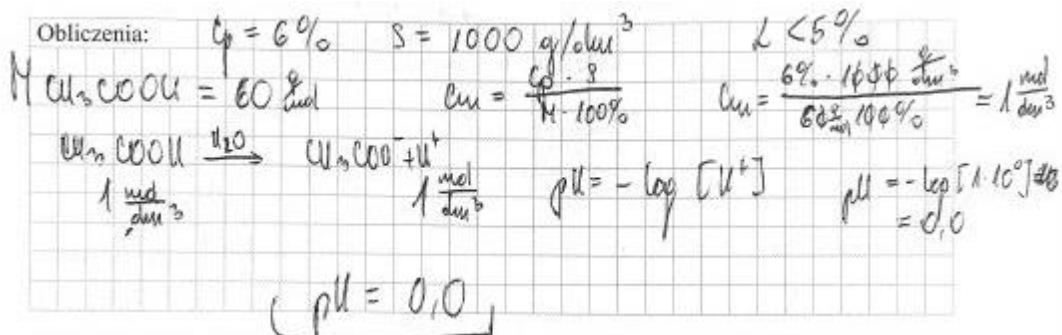 Obliczenia: Cp = 6% S = 1000 g/dm³ α < 5%
M CH₃COOH = 60 g/mol Cm = Cp · S / M · 100% Cm = 6% · 1000 g/dm³ / 60 g/mol · 100% = 1 mol/dm³
CH₃COOH H₂O → CH₃COO⁻ + H⁺
1 mol/dm³ 1 mol/dm³ pH = - log [H⁺] pH = - log [1 · 10⁰]
= 0,0
pH = 0,0